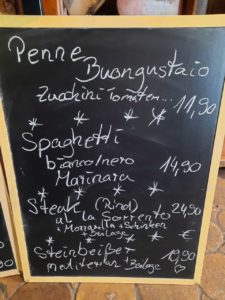 Penne
Buongustaio
Zucchini Tomaten... 11,90
* * * *
Spaghetti
bianco/nero 14,90
Marinara
* * * *
Steak (Rind) 24,90
al la Sorrento
+ Mozzarella + Schinken €
+ Beilage
Steinbeißer 19,90
mediterran + Beilage